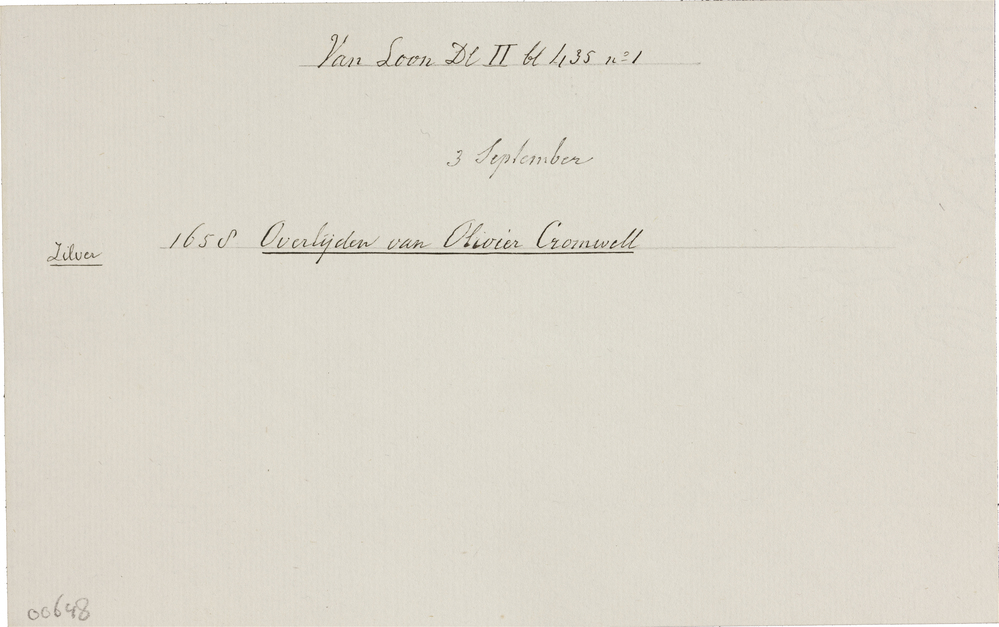 Van Loon Dl II bl 435 no 1
3 September
Zilver
1658 Overlijden van Olivier Cromwell
00648